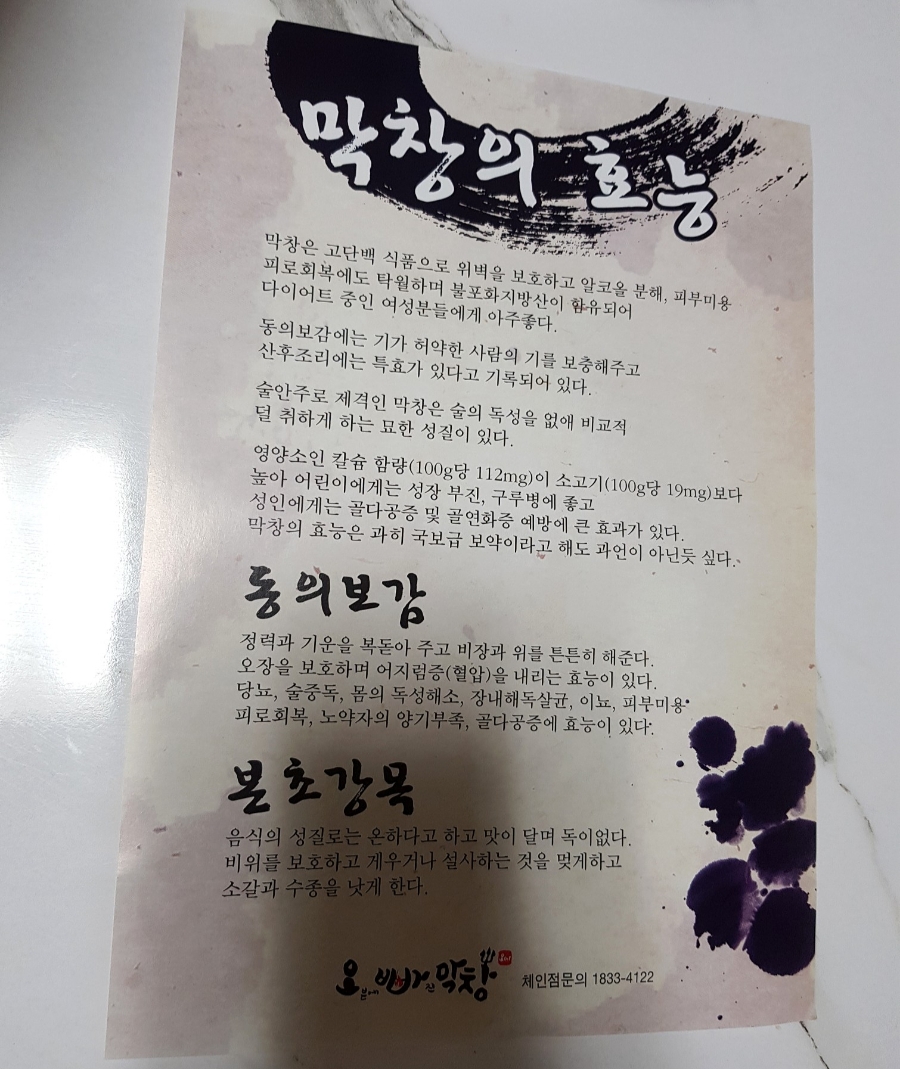 막창의 효능
막창은 고단백 식품으로 위벽을 보호하고 알코올 분해, 피부미용
피로회복에도 탁월하며 불포화지방산이 함유되어
다이어트 중인 여성분들에게 아주좋다.
동의보감에는 기가 허약한 사람의 기를 보충해주고
산후조리에는 특효가 있다고 기록되어 있다.
술안주로 제격인 막창은 술의 독성을 없애 비교적
덜 취하게 하는 묘한 성질이 있다.
영양소인 칼슘 함량(100g당 112mg)이 소고기(100g당 19mg)보다
높아 어린이에게는 성장 부진, 구루병에 좋고
성인에게는 골다공증 및 골연화증 예방에 큰 효과가 있다.
막창의 효능은 과히 국보급 보약이라고 해도 과언이 아닌듯 싶다.
동의보감
정력과 기운을 복돋아 주고 비장과 위를 튼튼히 해준다.
오장을 보호하며 어지럼증(혈압)을 내리는 효능이 있다.
당뇨, 술중독, 몸의 독성해소, 장내해독살균, 이뇨, 피부미용
피로회복, 노약자의 양기부족, 골다공증에 효능이 있다.
본초강목
음식의 성질로는 온하다고 하고 맛이 달며 독이없다.
비위를 보호하고 게우거나 설사하는 것을 멎게하고
소갈과 수종을 낫게 한다.
오븐에 빠진 막창 체인점문의 1833-4122